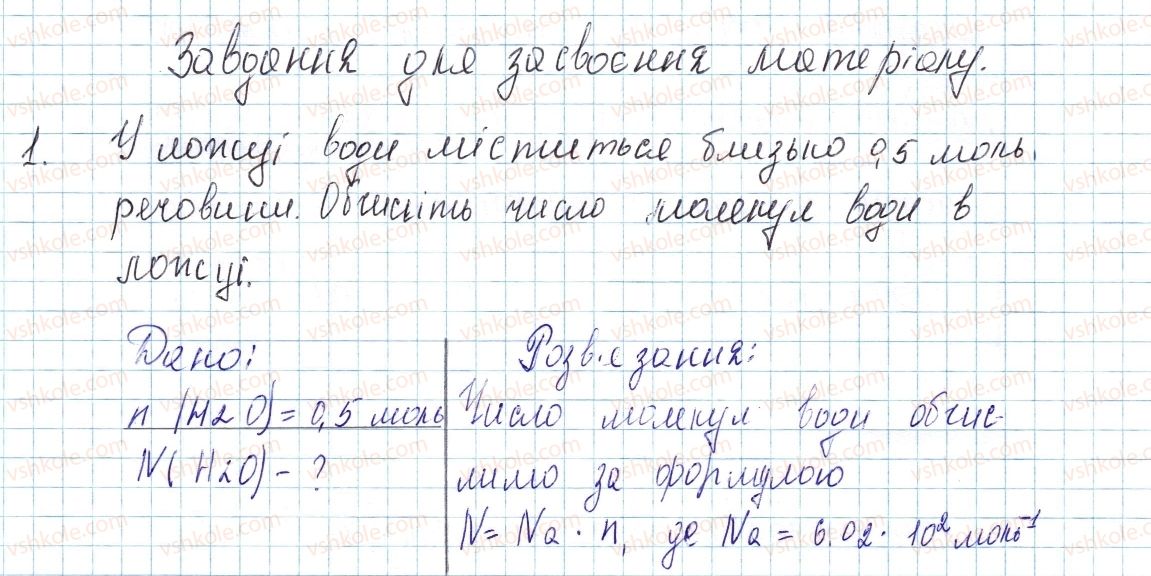 Завдання для засвоєння матеріалу.
1. У ложці води міститься близько 0,5 моль.
речовини. Обчисліть число молекул води в
ложці.
Дано:
n (H2O) = 0,5 моль
N(H2O) - ?
Розв'язання:
Число молекул води обчис-
лимо за формулою
N = Na · n, де Na = 6.02 · 10² моль⁻¹